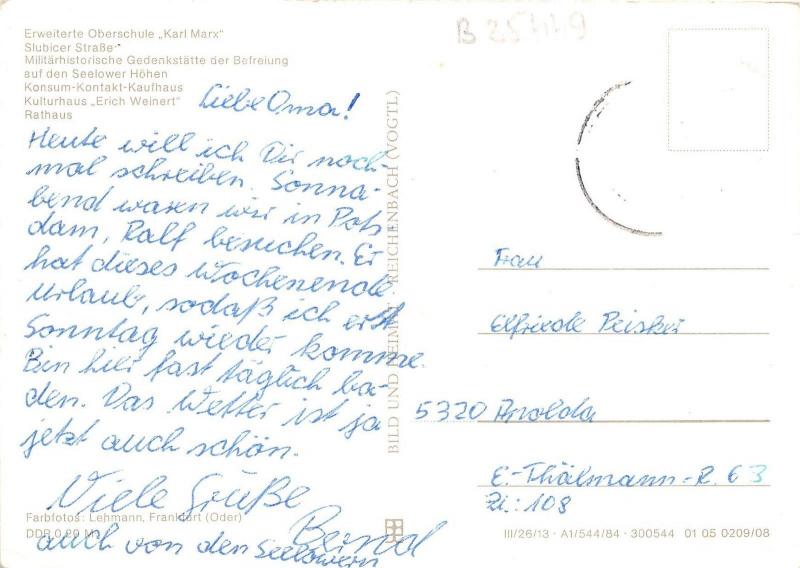 B 25449
Erweiterte Oberschule „Karl Marx"
Slubicer Straße
Militärhistorische Gedenkstätte der Befreiung
auf den Seelower Höhen
Konsum-Kontakt-Kaufhaus
Kulturhaus „Erich Weinert"
Rathaus
Liebe Oma!
Heute will ich Dir noch-
mal schreiben. Sonna-
bend waren wir in Pots
dam, Ralf besuchen. Er
hat dieses Wochenende
Urlaub, sodaß ich erst
Sonntag wieder komme.
Bin hier fast täglich ba-
den. Das Wetter ist ja
jetzt auch schön.
Viele Grüße
Bernd
auch von den Seelowern
Farbfotos: Lehmann, Frankfurt (Oder)
DDR 0,20 M
BILD UND HEIMAT REICHENBACH (VOGTL)
Frau
Elfriede Peisker
5320 Apolda
E.-Thälmann-R. 63
Zi.: 108
III/26/13 · A1/544/84 · 300544 01 05 0209/08